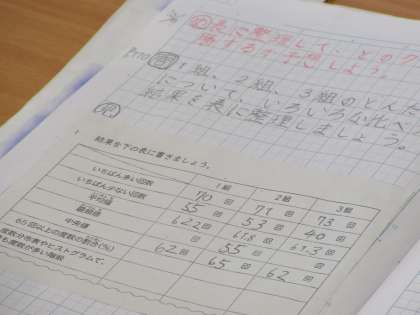 表に整理して、どのク
勝するか予想しよう。
P110 問
1組、2組、3組のとんだ
について、いろいろな比べ
結果を表に整理しましょう。
結果を下の表に書きましょう。
1組 2組 3組
いちばん多い回数 70 回 79 回 73 回
いちばん少ない回数 55 回 53 回 40 回
平均値 62.2 回 61.8 回 61.3 回
最頻値 回 55 回 回
中央値 62 回 65 回 62 回
65回以上の度数の割合(%)
度数分布表やヒストグラムで、
も度数が多い階級